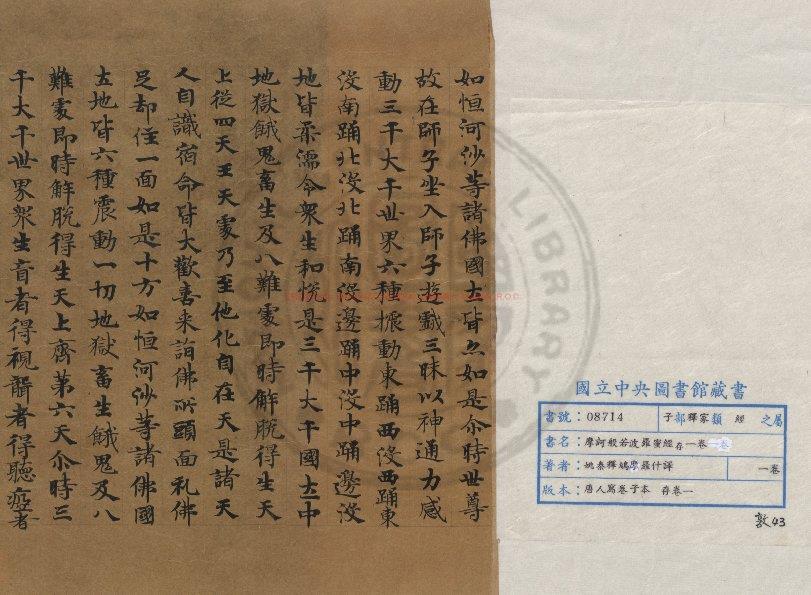 如恒河沙等諸佛國土皆亦如是尒時世尊
故在師子坐入師子遊戲三昧以神通力感
動三千大千世界六種振動東踊西没西踊東
没南踊北没北踊南没邊踊中没中踊邊没
地皆柔濡令衆生和悅是三千大千國土中
地獄餓鬼畜生及八難處即時解脫得生天
上從四天王天處乃至他化自在天是諸天
人自識宿命皆大歡喜来詣佛所頭面礼佛
足却住一面如是十方如恒河沙等諸佛國
土地皆六種震動一切地獄畜生餓鬼及八
難處即時解脫得生天上齊第六天尒時三
千大千世界衆生盲者得視聾者得聽瘂者
國立中央圖書館藏書
書號：08714 子部釋家類 經 之屬
書名：摩訶般若波羅蜜經存一卷
著者：姚秦釋鳩摩羅什譯 一卷
版本：唐人寫卷子本 存卷一
敦43
LIBRARY